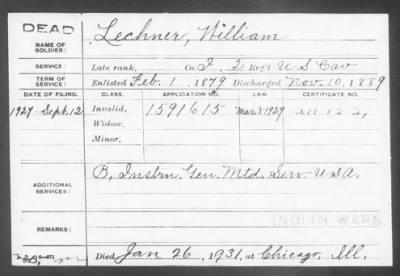 DEAD
NAME OF SOLDIER:
Lechner, William
SERVICE:
Late rank, Co. I, 2 Reg't U S Cav
TERM OF SERVICE:
Enlisted Feb. 1 1879 Discharged Nov. 10, 1889
DATE OF FILING. CLASS. APPLICATION NO. LAW. CERTIFICATE NO.
1927 Sept. 12 Invalid, 1591615 Mar 3 1927
Widow,
Minor,
ADDITIONAL SERVICES:
B, Instrn. Gen. Mtd. Serv. USA.
INDIAN WARS
REMARKS:
Died Jan 26, 1931, at Chicago, Ill.